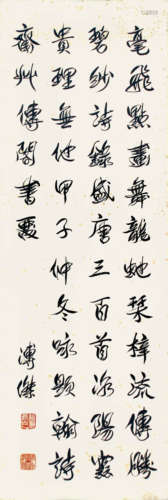 毫飛點畫舞龍虵栞梓流傳勝
碧紗詩錄盛唐三百首洛陽
貴理無他甲子仲冬詠題翰詩
齋艸傳閣書
溥傑